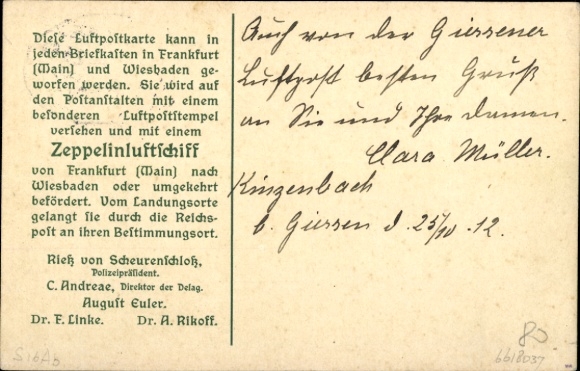 Diese Luftpostkarte kann in
jeden Briefkasten in Frankfurt
(Main) und Wiesbaden ge-
worfen werden. Sie wird auf
den Postanstalten mit einem
besonderen Luftpoststempel
versehen und mit einem
Zeppelinluftschiff
von Frankfurt (Main) nach
Wiesbaden oder umgekehrt
befördert. Vom Landungsorte
gelangt sie durch die Reichs-
post an ihren Bestimmungsort.
Rieß von Scheurenschloß,
Polizeipräsident.
C. Andreae, Direktor der Delag.
August Euler.
Dr. F. Linke. Dr. A. Rikoff.
Auch von der Giessener
Luftpost besten Gruß
an Sie und Ihre Damen.
Clara Müller.
Kinzenbach
b. Giessen d. 25/10.12.
S16Ab
80
6618037